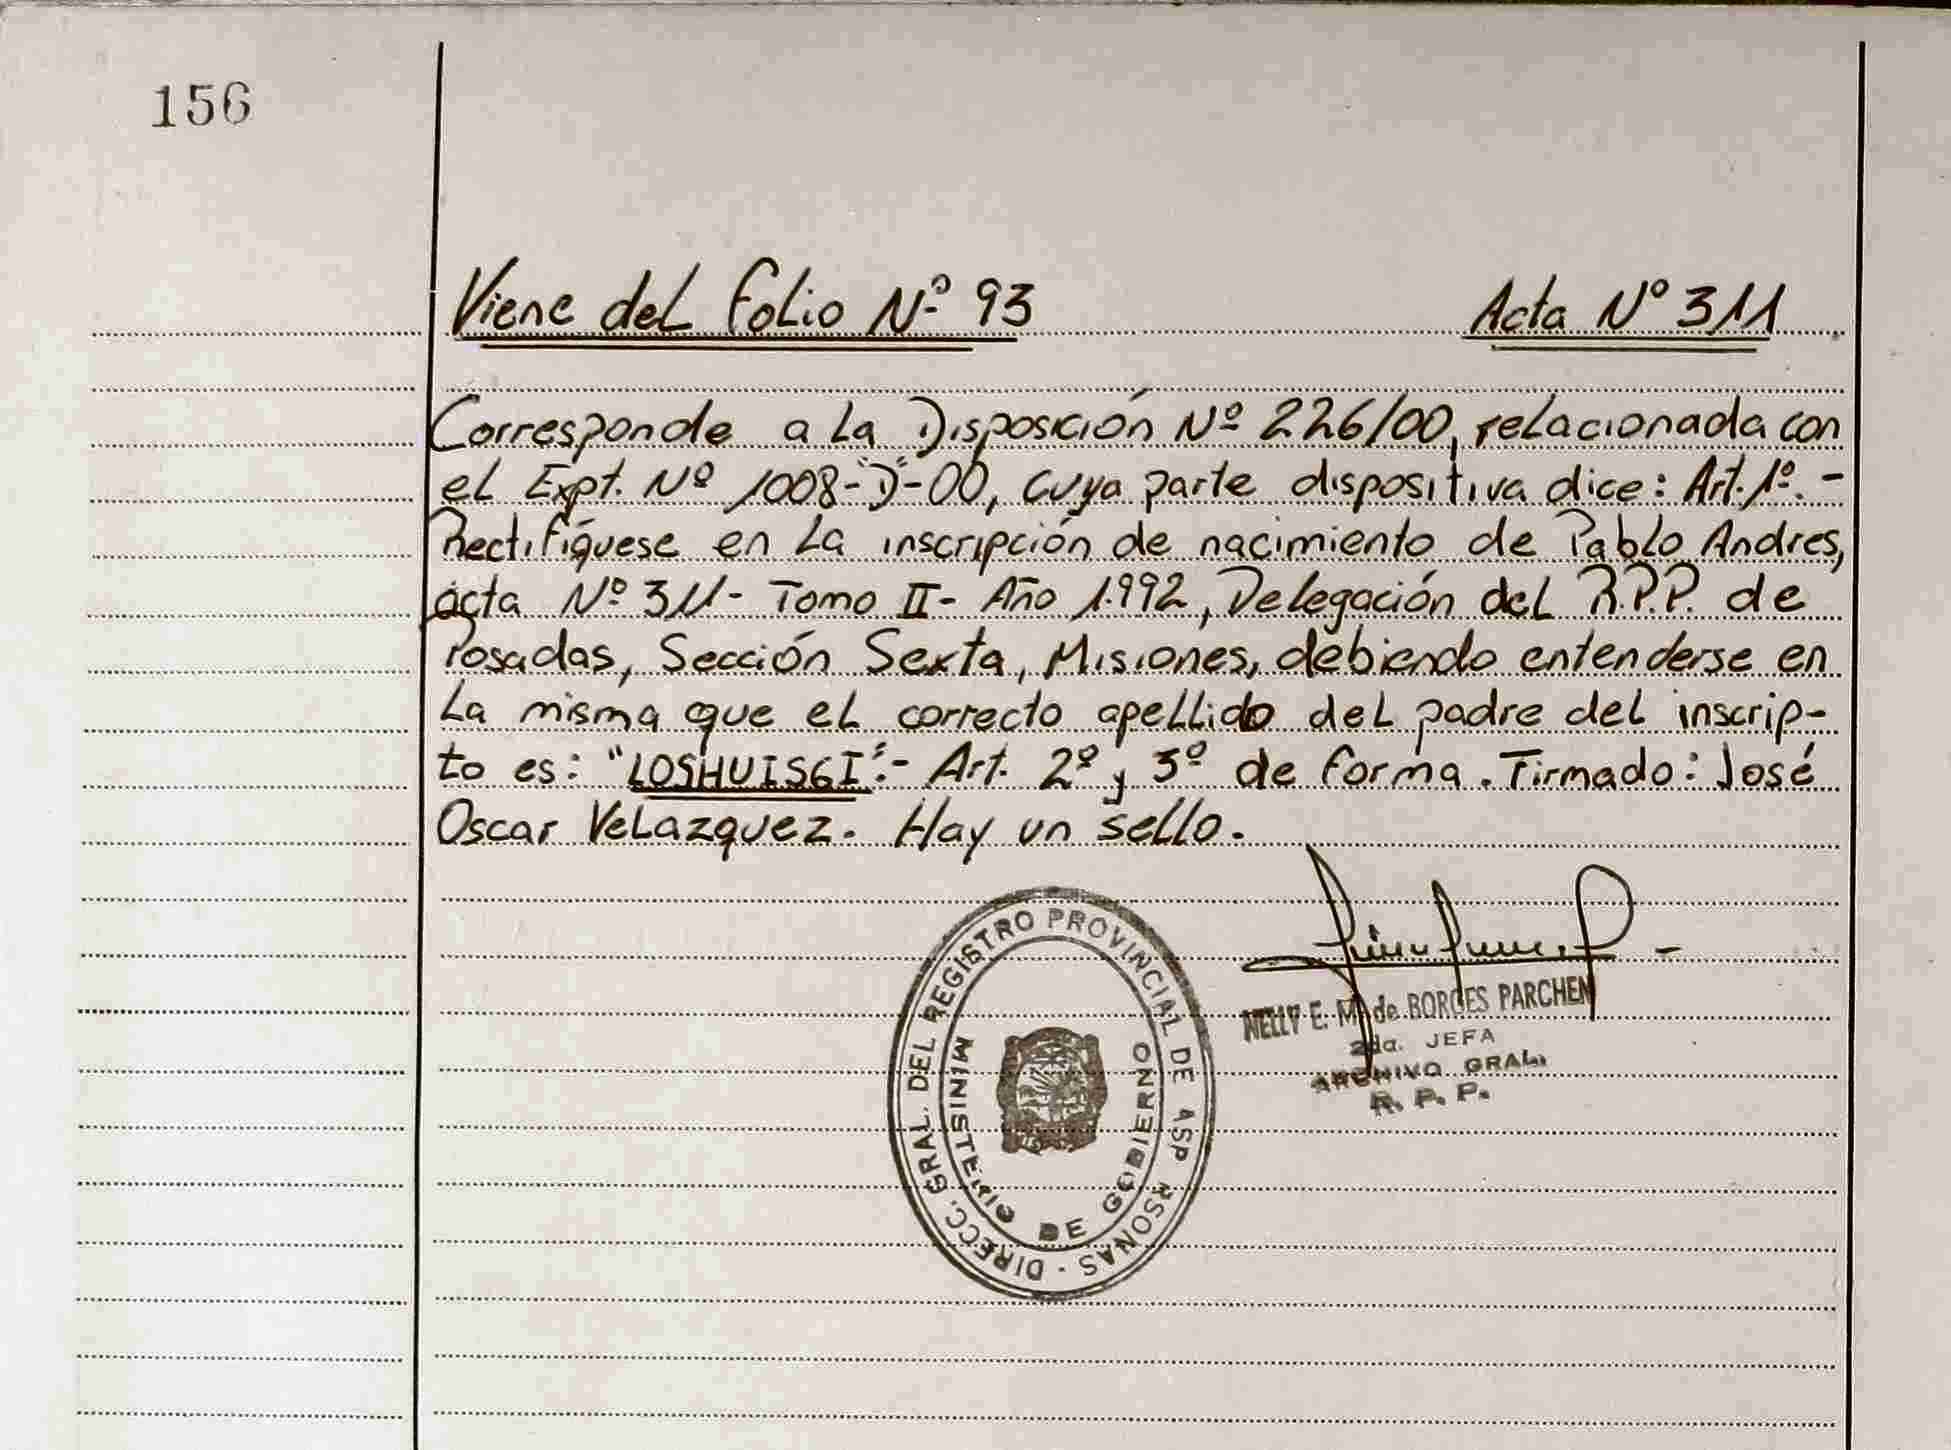 156
Viene del Folio Nº 93 Acta Nº 311
Corresponde a la Disposición Nº 226/00, relacionada con
el Expt. Nº 1008-"D"-00, cuya parte dispositiva dice: Art. 1º.-
Rectifíquese en la inscripción de nacimiento de Pablo Andres,
acta Nº 311- Tomo II- Año 1.992, Delegación del R.P.P. de
Posadas, Sección Sexta, Misiones, debiendo entenderse en
la misma que el correcto apellido del padre del inscrip-
to es: "LOSHUISGI".- Art. 2º y 3º de forma. Firmado: José
Oscar Velazquez. Hay un sello.
DIRECC. GRAL. DEL REGISTRO PROVINCIAL DE ASP RSONAS -
MINISTERIO DE GOBIERNO
NELLY E. M. de BORGES PARCHEN
2da. JEFA
ARCHIVO GRAL.
R. P. P.